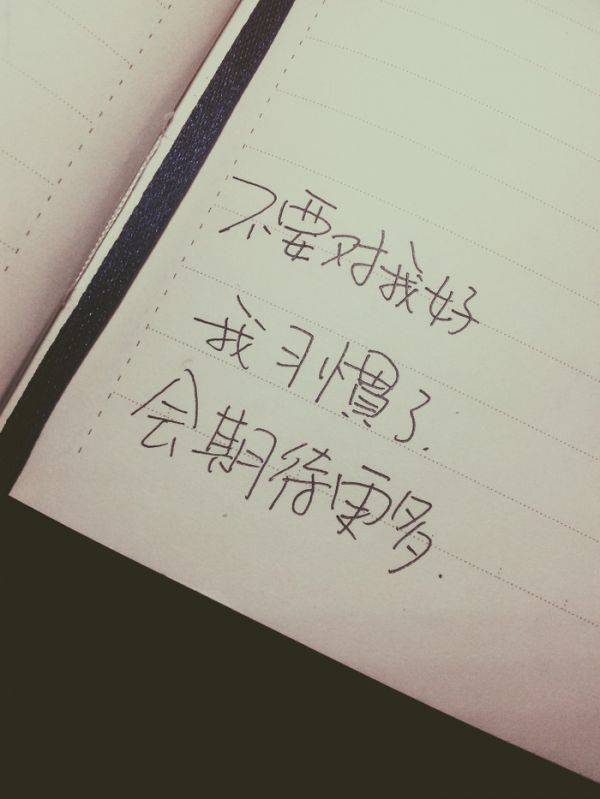 不要对我好
我习慣了.
会期待更多.